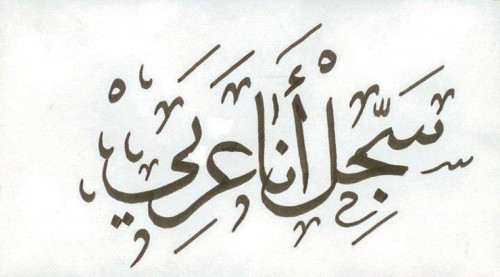 سَجِّلْ أَنا عَرَبي